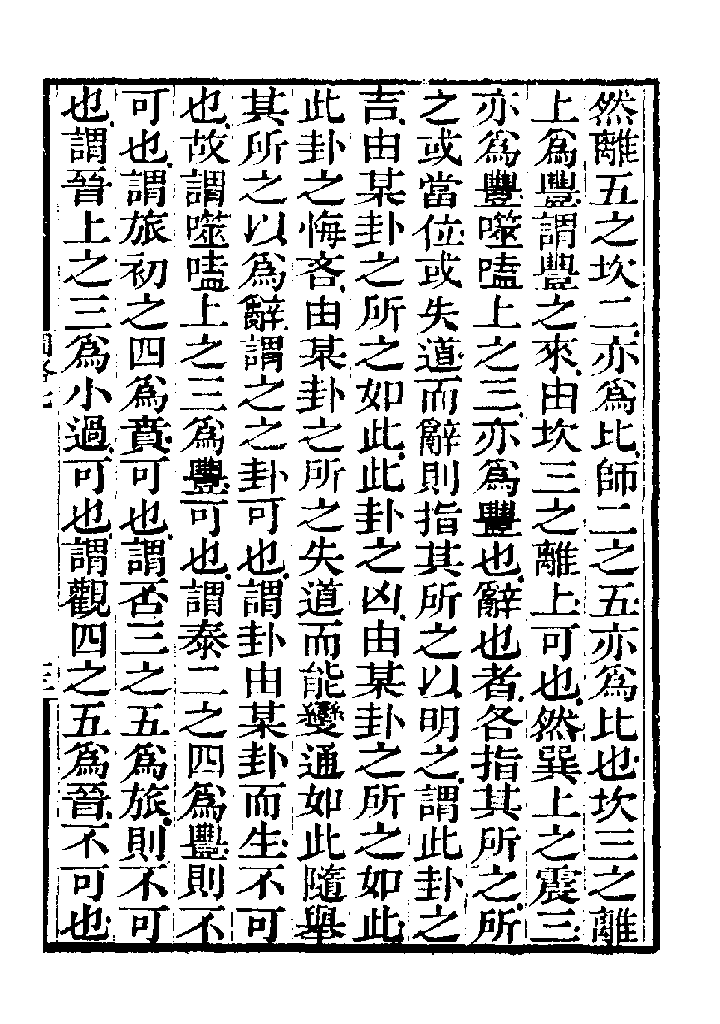 然離五之坎二亦爲比師二之五亦爲比也坎三之離
上爲豐謂豐之來由坎三之離上可也然巽上之震三
亦爲豐噬嗑上之三亦爲豐也辭也者各指其所之所
之或當位或失道而辭則指其所之以明之謂此卦之
吉由某卦之所之如此此卦之凶由某卦之所之如此
此卦之悔吝由某卦之所之失道而能變通如此隨舉
其所之以爲辭謂之之卦可也謂卦由某卦而生不可
也故謂噬嗑上之三爲豐可也謂泰二之四爲豐則不
可也謂旅初之四爲賁可也謂否三之五爲旅則不可
也謂晉上之三爲小過可也謂觀四之五爲晉不可也
圖畧七
三